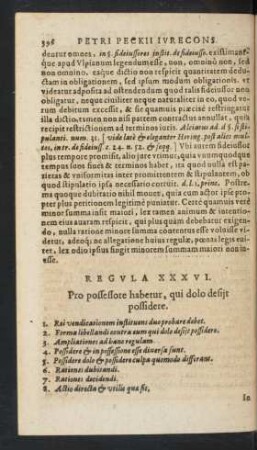 396 PETRI PECKII IVRECONS.
deatur omnes, in §. fideiussores instit. de fideiuss. existimant-
que apud Vlpianum legendum esse, non, omnino non, sed
non omnino. eaque dictio non respicit quantitatem deduc-
tam in obligationem, sed ipsum modum obligationis. vt
videatur adposita ad ostendendum quod talis fideiussor non
obligatur, neque ciuiliter neque naturaliter in eo, quod ve-
rum debitum excessit, & se quamuis præcise restringatur
illa dictio, tamen non nisi partem contractus annullat, quia
recipit restrictionem ad terminos iuris. Alciatus ad d. §. sti-
pulanti. num. 31. [vide latè & eleganter Hering. post alios mul-
tos, intr. de fideiuss. c. 24. n. 52. & seqq.] Vbi autem fideiussor
plus tempore promisit, alio iure vtimur, quia vnumquodque
tempus suos fines & terminos habet, ita quod nulla est pa-
rietas & vniformitas inter promittentem & stipulantem, ob
quod stipulatio ipsa necessario corruit. d. l. 1. princ. Postre-
ma quoque dubitatio nihil mouet, quia cum plus petitione
continetur, plus petentem legitimè puniuntur. Certè quamuis veré
minor summa insit maiori, lex tamen animum & intentio-
nem eius tantum aspexit, qui plus quàm debebatur exigen-
do, nulla ratione minore summa contentus esse voluisse vi-
detur, adeoque in allegatione huius regulæ, poenta legis eui-
ter, lex odio ipsius fingit minorem summam maiori non in-
esse.
REGVLA XXXVI.
Pro possessore habetur, qui dolo desijt
possidere.
1. Rei vendicationem instituens duo probare debet.
2. Forma libellandi contra eum qui dolo desijt possidere.
3. Ampliationes ad hanc regulam.
4. Possidere & in possessione esse diuersa sunt.
5. Possidere dolo & possidere culpa quomodo differant.
6. Rationes dubitandi.
7. Rationes decidendi.
8. Actio directa & vtilis quæ sit,
In